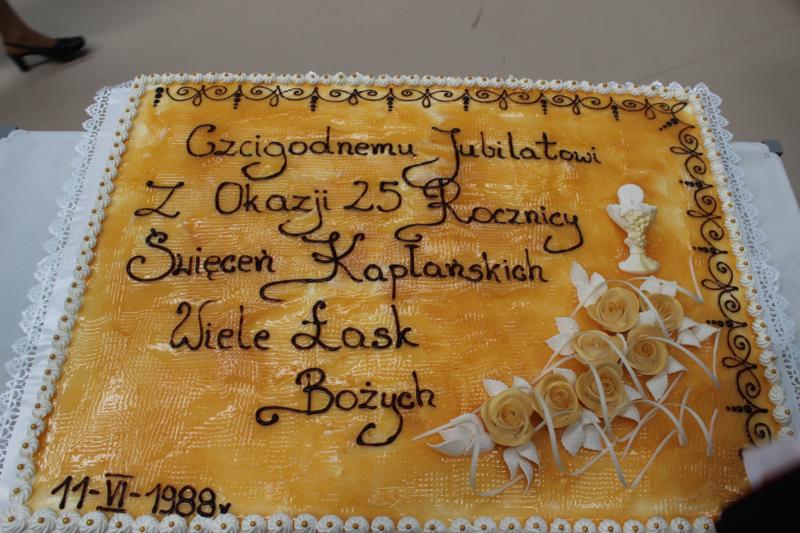 Czcigodnemu Jubilatowi
Z Okazji 25 Rocznicy
Święceń Kapłańskich
Wiele Łask
Bożych
11-VI-1988r